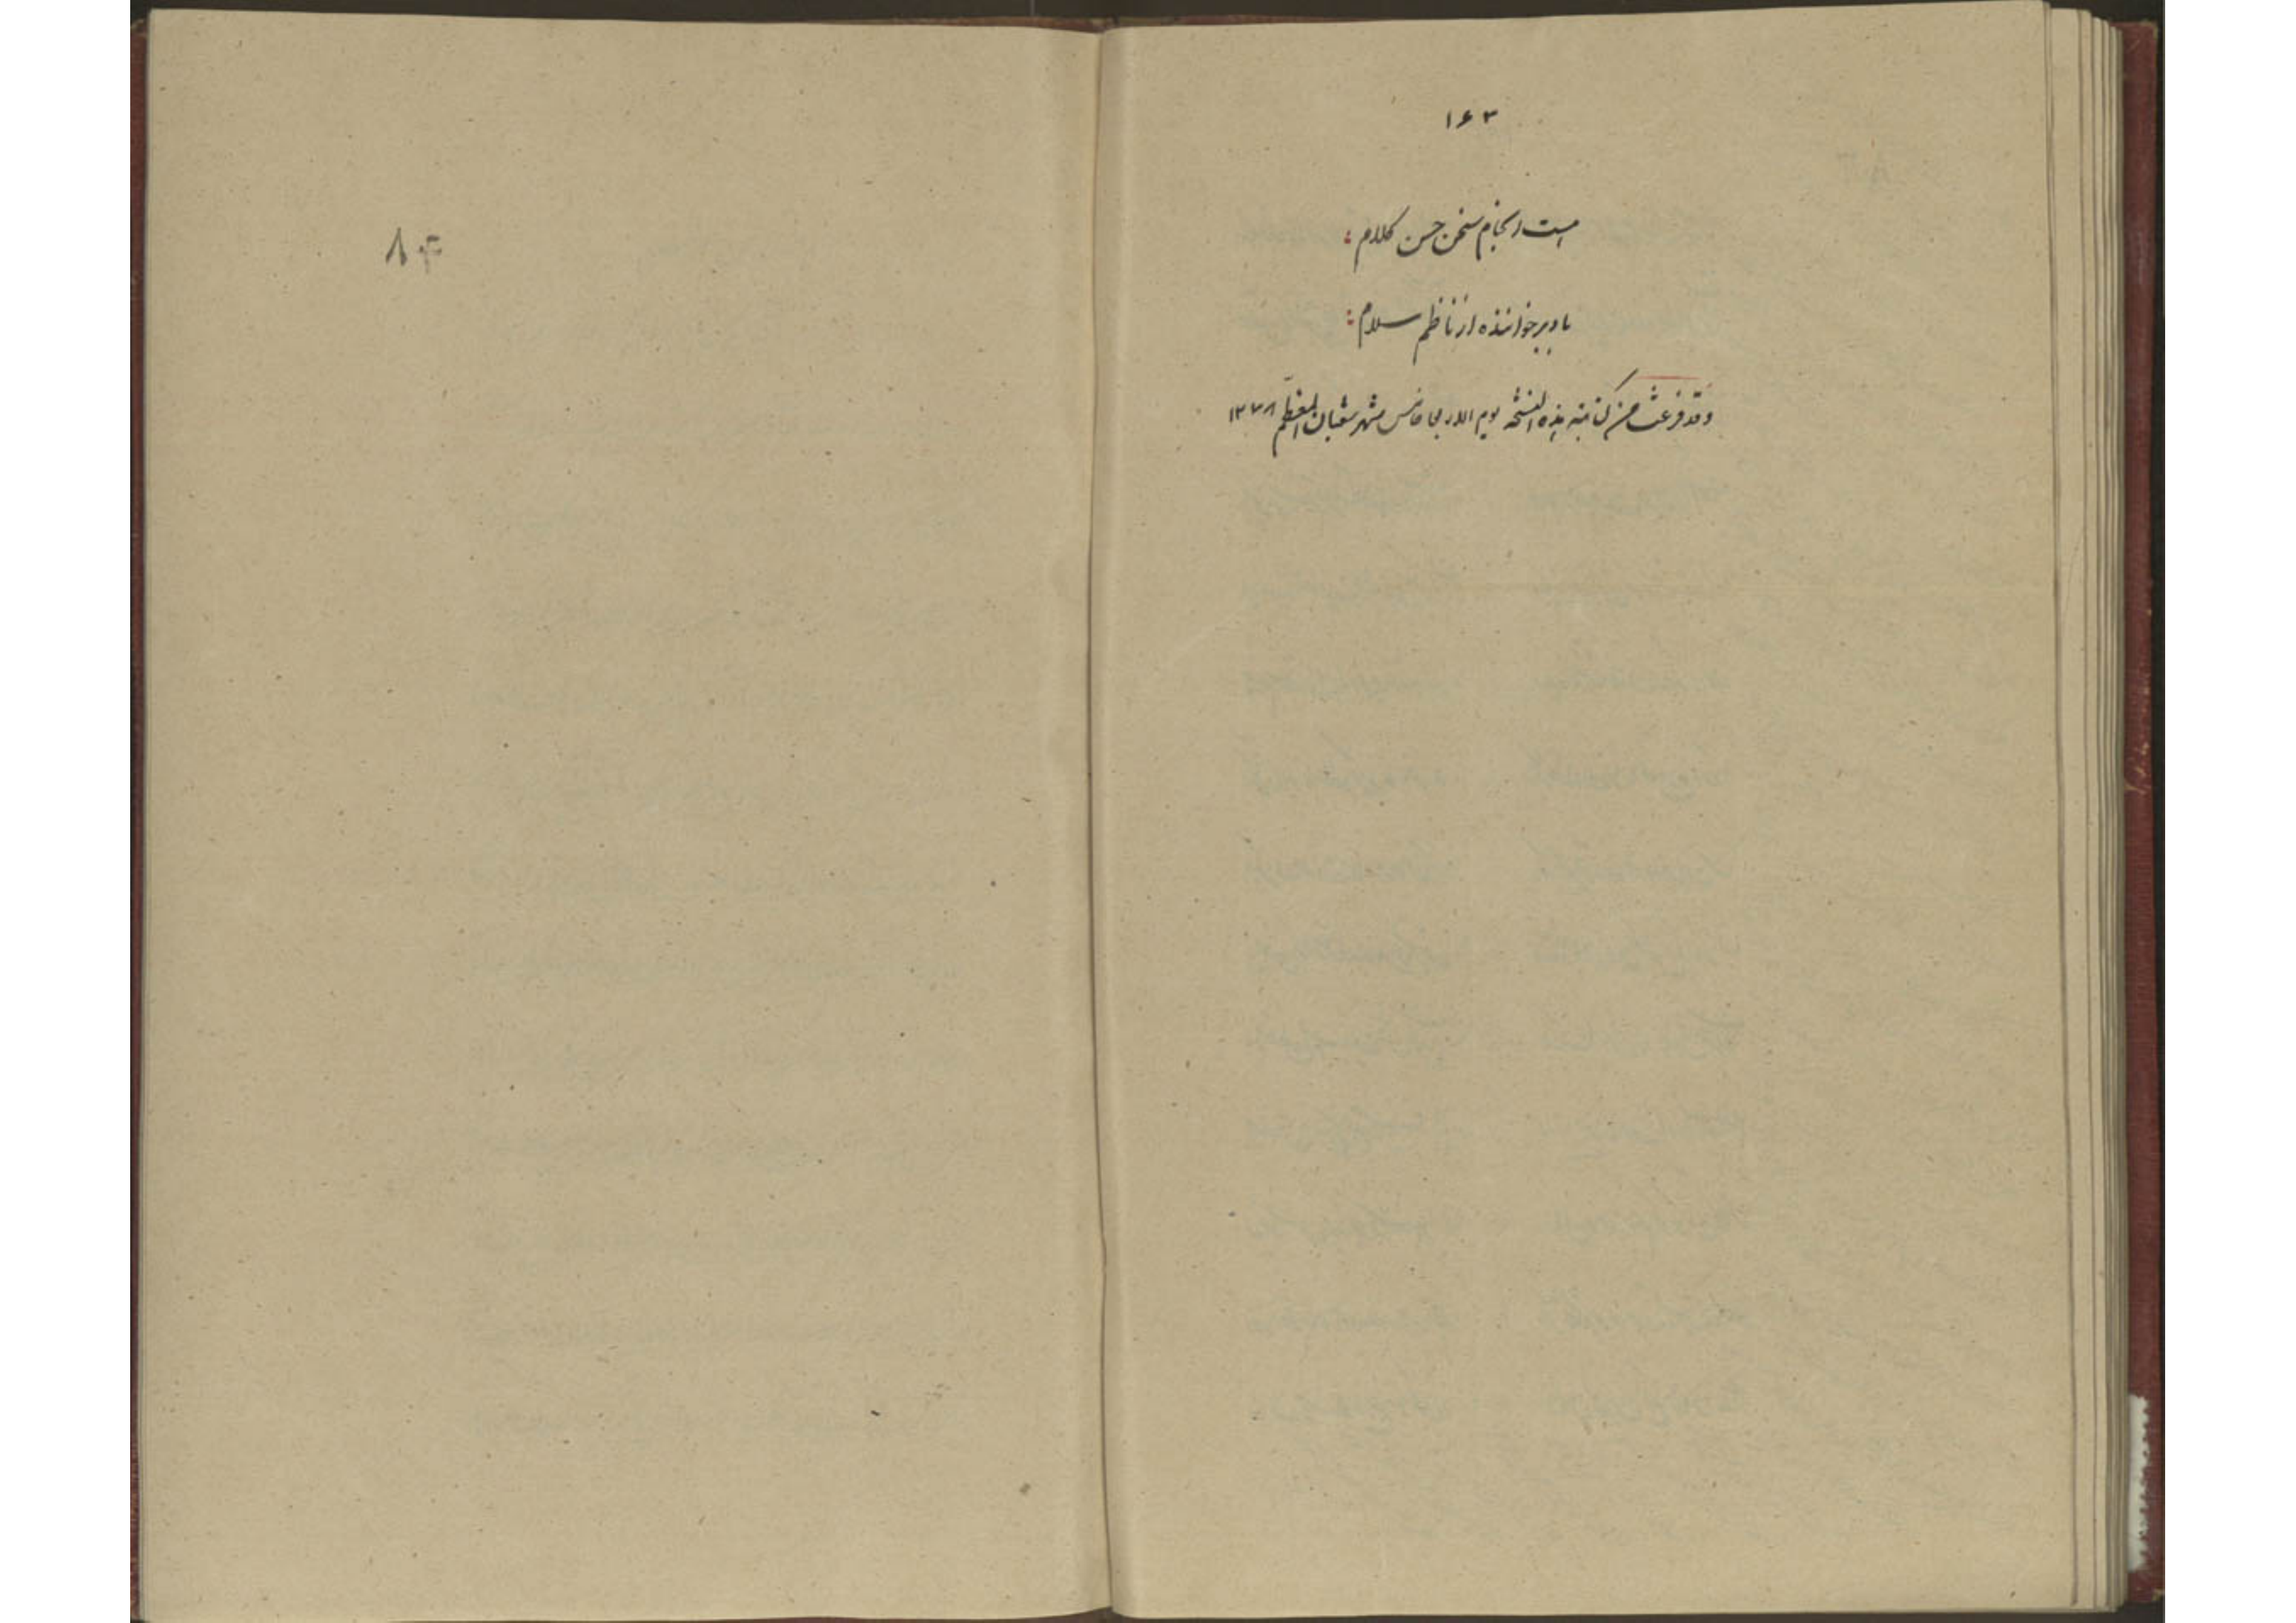 ۱۶۳
است انجام سخن حسن کلام
باد بر خواننده از ناظم سلام
وقد فرغت من کتابة هذه النسخة یوم الاربعا خامس شهر شعبان المعظم ۱۳۷۸
۸۴